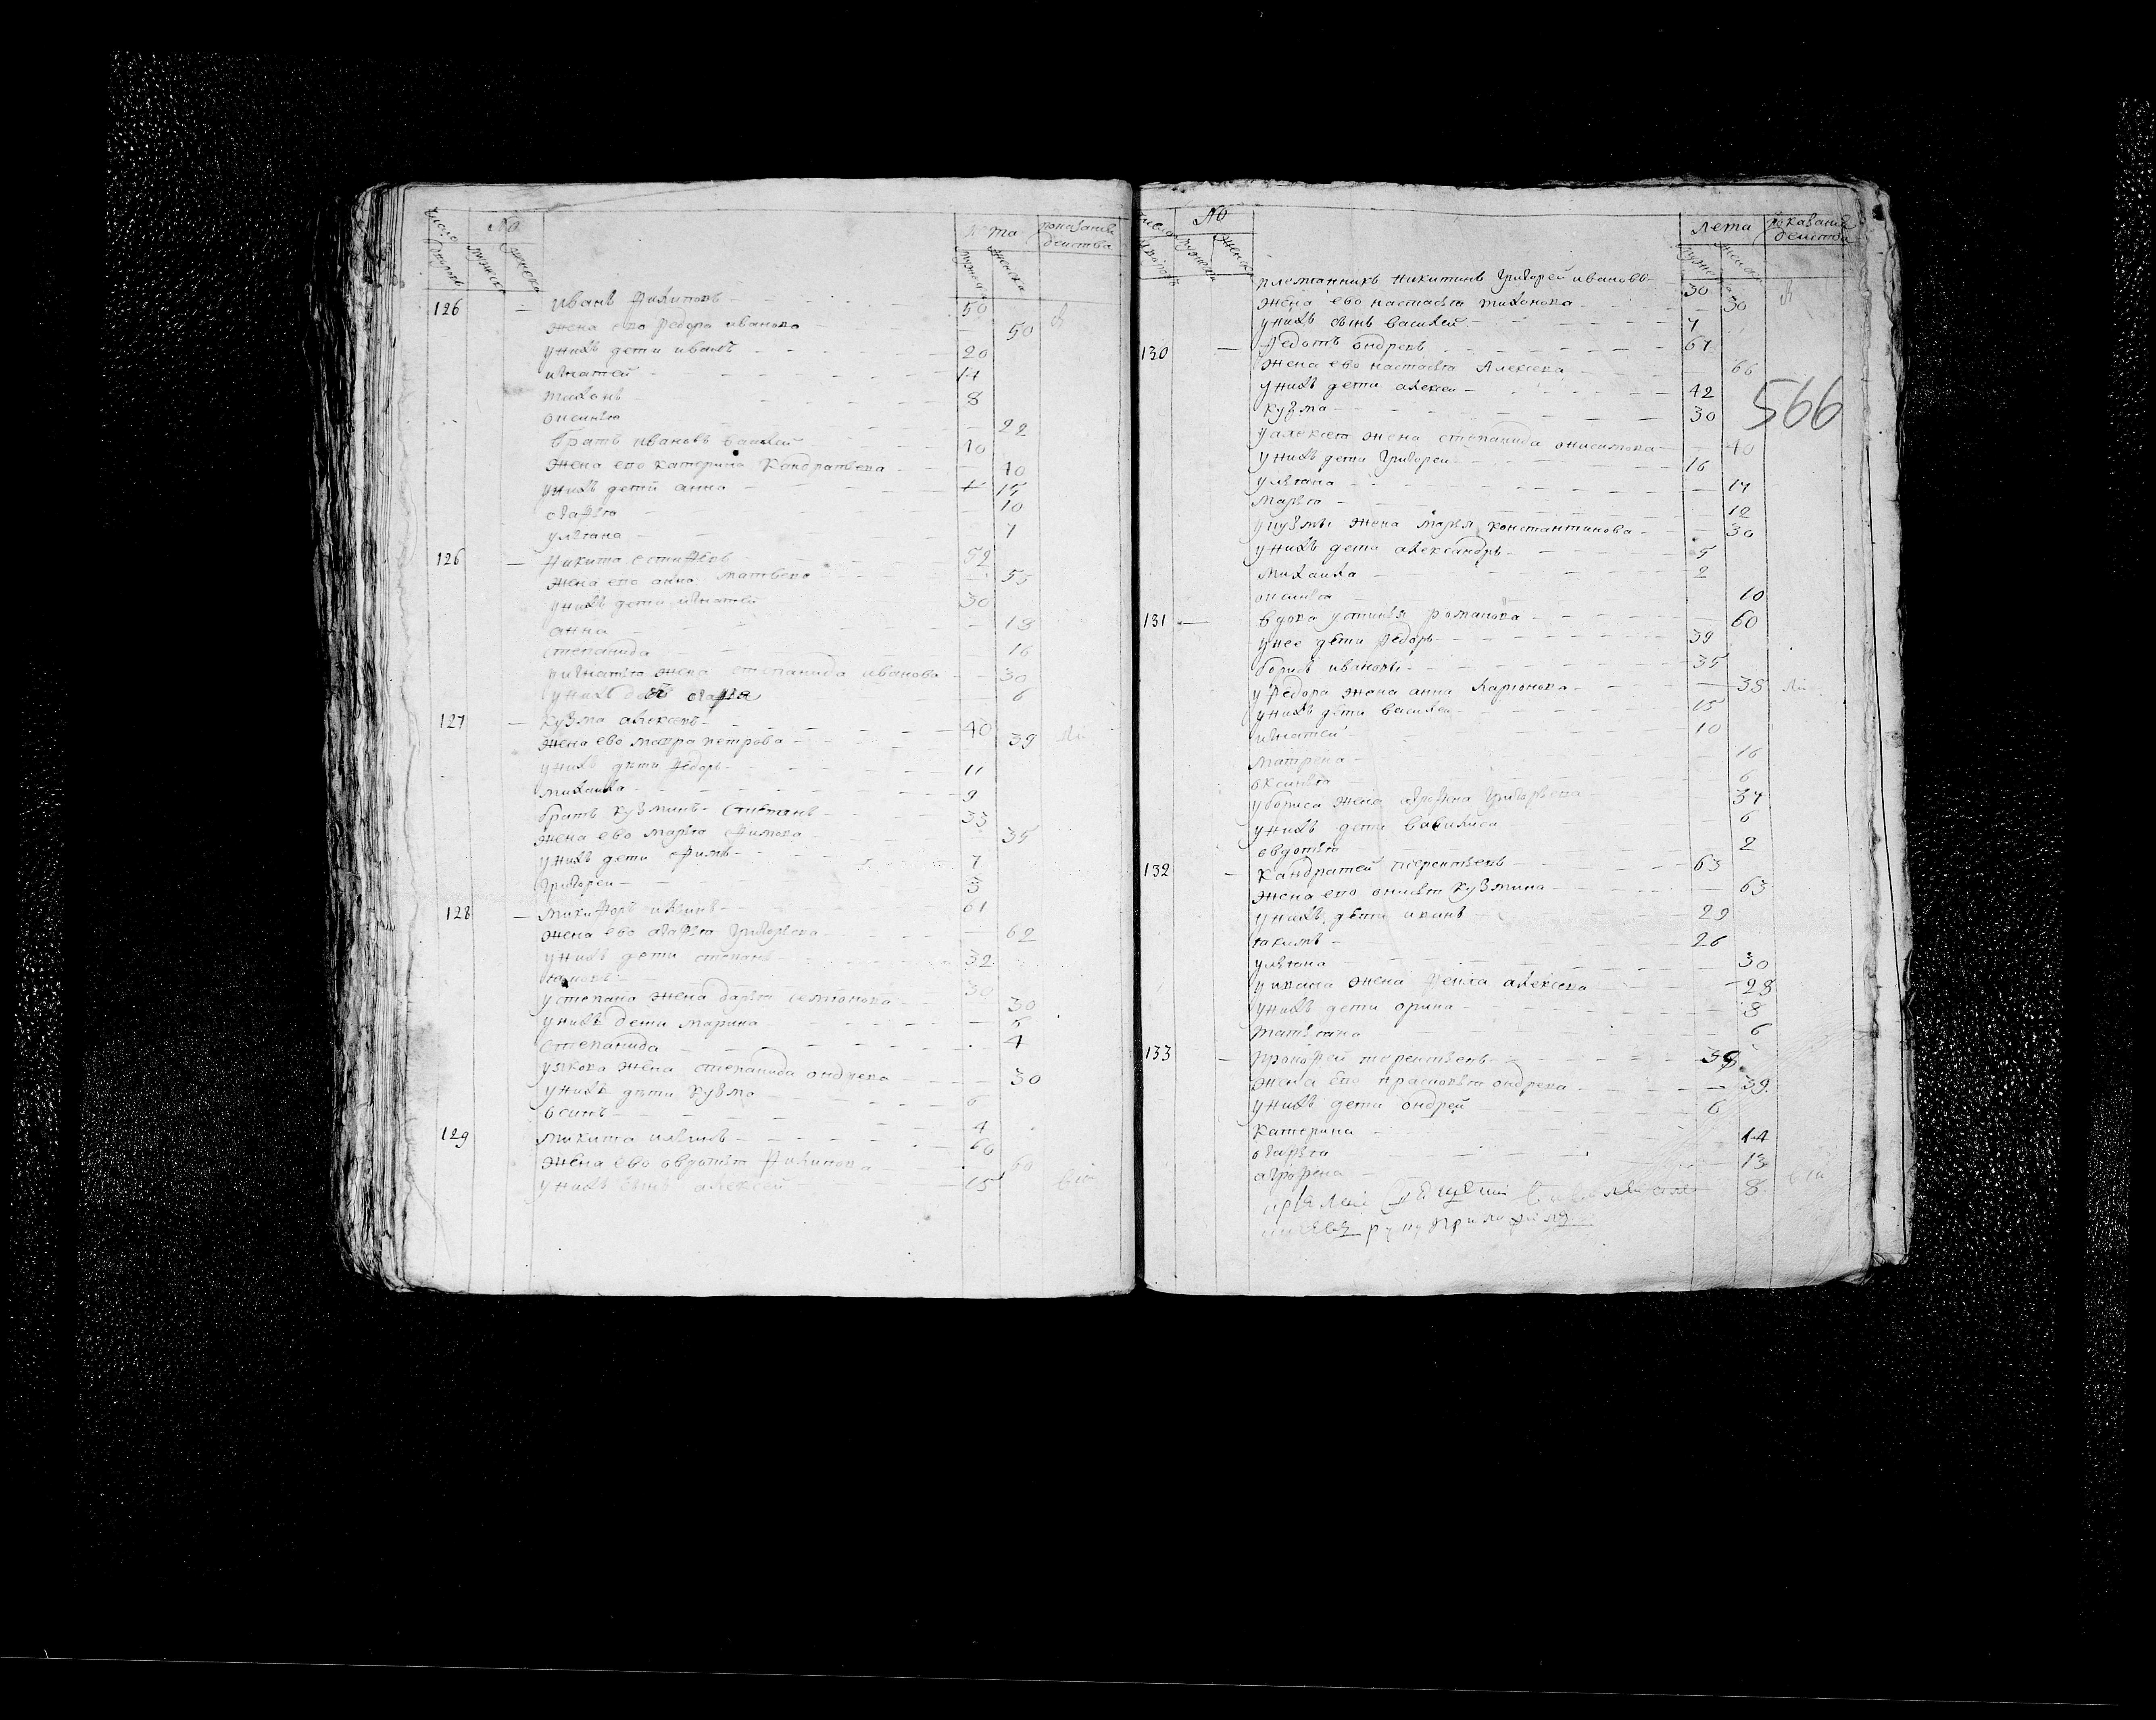 число дворовъ № мужеска женска лета мужеска женска показание действа
126 — иванъ филиповъ — 50
жена ево федора иванова — 50
у нихъ дети иванъ — 20
игнатей — 14
тихонъ — 8
оксинья — 22
братъ ивановъ василей — 40
жена ево катерина кандратьева — 40
у нихъ дети анна — 15
агафья — 10
ульяна — 7
126 — никита естифѣевъ — 52
жена ево анна матвѣева — 55
у нихъ дети игнатей — 30
анна — 18
степанида — 16
у игнатья жена степанида иванова — 30
у нихъ дочь агафья 6
127 — кузма алексѣевъ — 40
жена ево мавра петрова — 39
у нихъ дѣти федоръ — 11
михаила — 9
братъ кузминъ степанъ — 33
жена ево марья фимова — 35
у нихъ дети фимъ — 7
григореи — 3
128 — микифоръ ильинъ — 61
жена ево агафья григорьева — 62
у нихъ дети степанъ — 32
яковъ — 30
у степана жена дарья семионова — 30
у нихъ дети марина — 5
степанида — 4
у якова жена степанида ондреева — 30
у нихъ дѣти кузма — 6
осипъ — 4
129 микита ильинъ — 60
жена ево овдотья филипова — 60
у нихъ сынъ алексей — 15
число дворовъ № мужеска женска лета мужеска женска показание действа
племянникъ никитинъ григорей ивановъ — 30
жена ево настасья тихонова — 30
у нихъ сынъ василей — 7
566
130 — федотъ ондреевъ — 67
жена ево настасья алексеева — 66
у нихъ дети алексеи — 42
кузма — 30
у алексея жена степанида онисимова — 40
у нихъ дети григореи — 16
ульяна — 14
марья — 12
у кузмы жена марья константинова — 30
у нихъ дети александръ — 5
михаила — 2
оксинья 10
131 — вдова устинья романова — 60
у нее дѣти федоръ — 39
борисъ ивановы — 35
у федора жена анна ларионова — 38
у нихъ дѣти василеи — 15
игнатей — 10
матрена — 16
оксинья — 6
у бориса жена агрофена григорьева — 34
у нихъ дети василиса — 6
овдотья — 2
132 — кандратей терентьевъ — 63
жена ево онисья кузмина — 63
у нихъ дѣти иванъ — 29
якимъ — 26
ульяна — 30
у ивана жена фекла алексеева — 28
у нихъ дети орина — 8
татьяна — 6
133 — прокофей терентьевъ — 39
жена ево прасковья ондреева — 39
у нихъ дети ондрей — 6
катерина — 14
огафья — 13
агрофена — 8
руку приложилъ